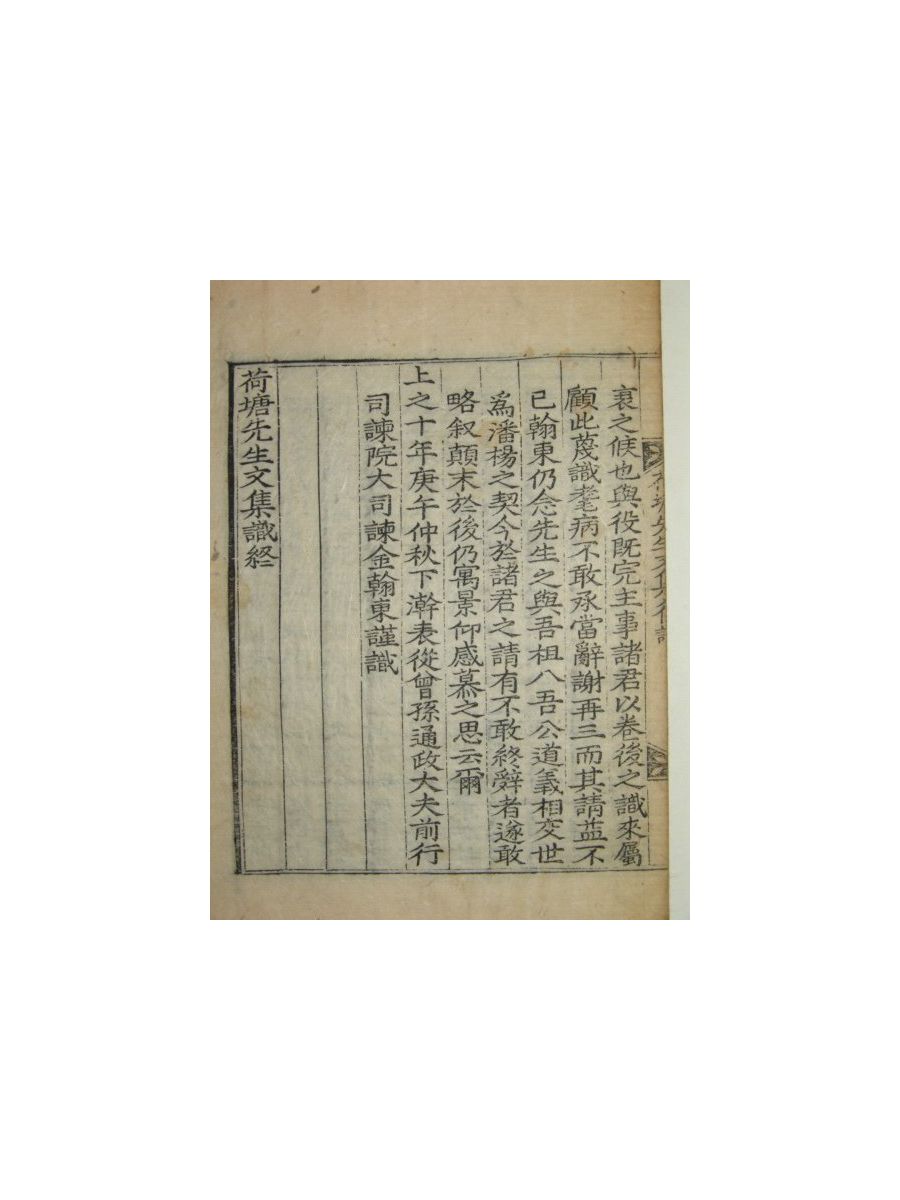 衰之候也與役旣完主事諸君以卷後之識來屬
顧此蔑識耄病不敢承當辭謝再三而其請益不
已翰東仍念先生之與吾祖八吾公道義相交世
爲潘楊之契今於諸君之請有不敢終辭者遂敢
略叙顛末於後仍寓景仰感慕之思云爾
上之十年庚午仲秋下澣表從曾孫通政大夫前行
司諫院大司諫金翰東謹識
荷塘先生文集識終